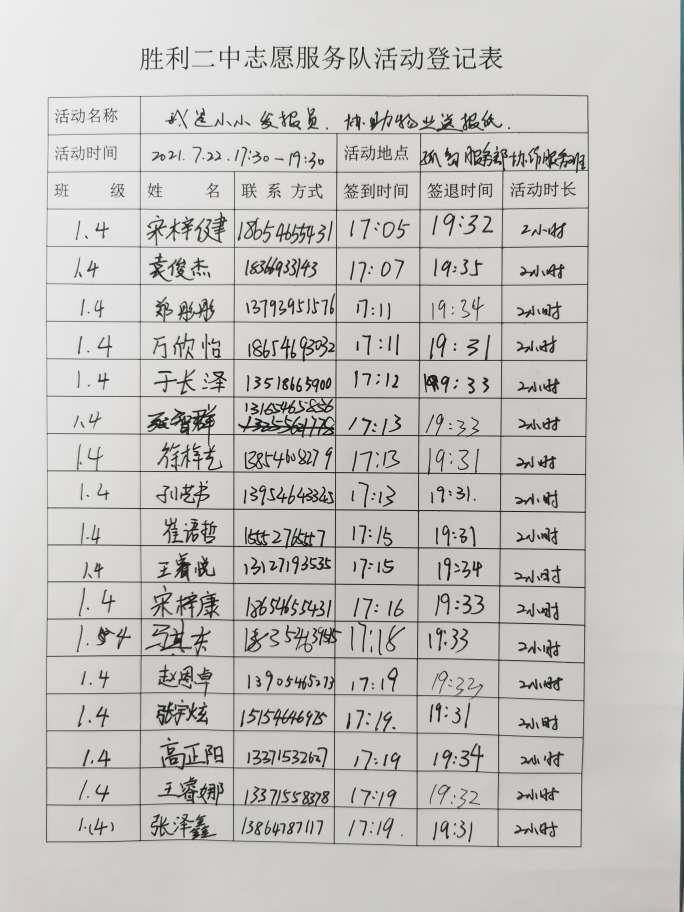 胜利二中志愿服务队活动登记表
活动名称 我是小小发报员.协助物业送报纸.
活动时间 2021.7.22.17:30-19:30 活动地点 服务部协作服务班
班 级 姓 名 联系方式 签到时间 签退时间 活动时长
1.4 宋梓健 18654655431 17:05 19:32 2小时
1.4 袁俊杰 18366933143 17:07 19:35 2小时
1.4 郑彤彤 13793951576 17:11 19:34 2小时
1.4 万欣怡 18654693032 17:11 19:31 2小时
1.4 于长泽 13518665900 17:12 19:33 2小时
1.4 智群 13165465856 17:13 19:33 2小时
1.4 徐梓艺 13854608279 17:13 19:31 2小时
1.4 孙艺书 13954643345 17:13 19:31. 2小时
1.4 崔语哲 15552765557 17:15 19:31 2小时
1.4 王睿悦 13127193535 17:15 19:34 2小时
1.4 宋梓康 18654655431 17:16 19:33 2小时
1.4 17:18 19:33 2小时
1.4 赵恩卓 13905465273 17:19 19:32 2小时
1.4 张宇炫 15154646975 17:19. 19:31 2小时
1.4 高正阳 13371532627 17:19 19:34 2小时
1.4 王睿娜 13371558378 17:19 19:32 2小时
1.(4) 张泽鑫 13864787117 17:19. 19:31 2小时